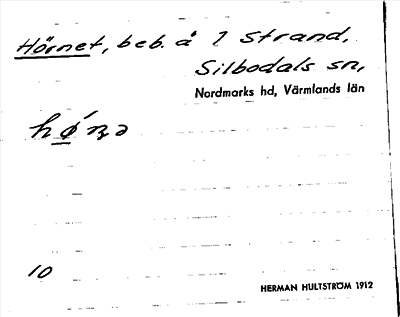 Hörnet, beb. å 1 Strand,
Silbodals sn,
Nordmarks hd, Värmlands län
hǿṇə
10
HERMAN HULTSTRÖM 1912